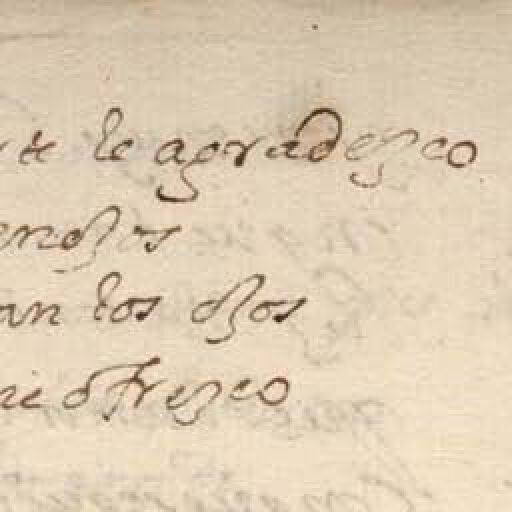 te le agradezco
enojos
an los ojos
ofrezco